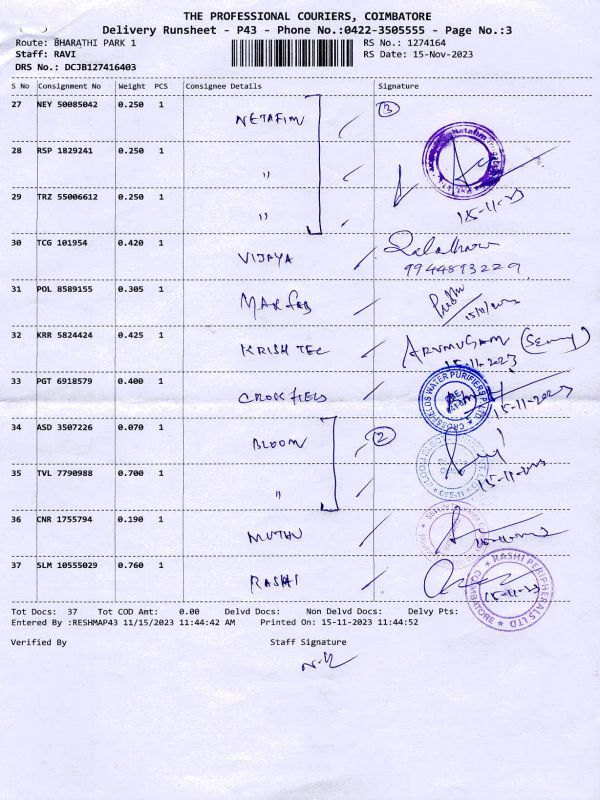 THE PROFESSIONAL COURIERS, COIMBATORE
Delivery Runsheet - P43 - Phone No.:0422-3505555 - Page No.:3
Route: BHARATHI PARK 1 RS No.: 1274164
Staff: RAVI RS Date: 15-Nov-2023
DRS No.: DCJB127416403
S No Consignment No Weight PCS Consignee Details Signature
27 NEY 50085042 0.250 1 NETAFIM 3
28 RSP 1829241 0.250 1 "
29 TRZ 55006612 0.250 1 " 15-11-23
30 TCG 101954 0.420 1 VIJAYA
9944893229
31 POL 8589155 0.305 1
32 KRR 5824424 0.425 1 KRISH TEC ARUMUGAM
15-11-2023
33 PGT 6918579 0.400 1 CROSSFIELD CROSS-FIELDS WATER PURIFIERS P LTD 15-11-2023
34 ASD 3507226 0.070 1 BLOOM 2
35 TVL 7790988 0.700 1 " 15-11-2023
36 CNR 1755794 0.190 1 MUTHU
37 SLM 10555029 0.760 1 RASHI RASHI PERIPHERALS LTD COIMBATORE 15-11-23
Tot Docs: 37 Tot COD Amt: 0.00 Delvd Docs: Non Delvd Docs: Delvy Pts:
Entered By :RESHMAP43 11/15/2023 11:44:42 AM Printed On: 15-11-2023 11:44:52
Verified By Staff Signature